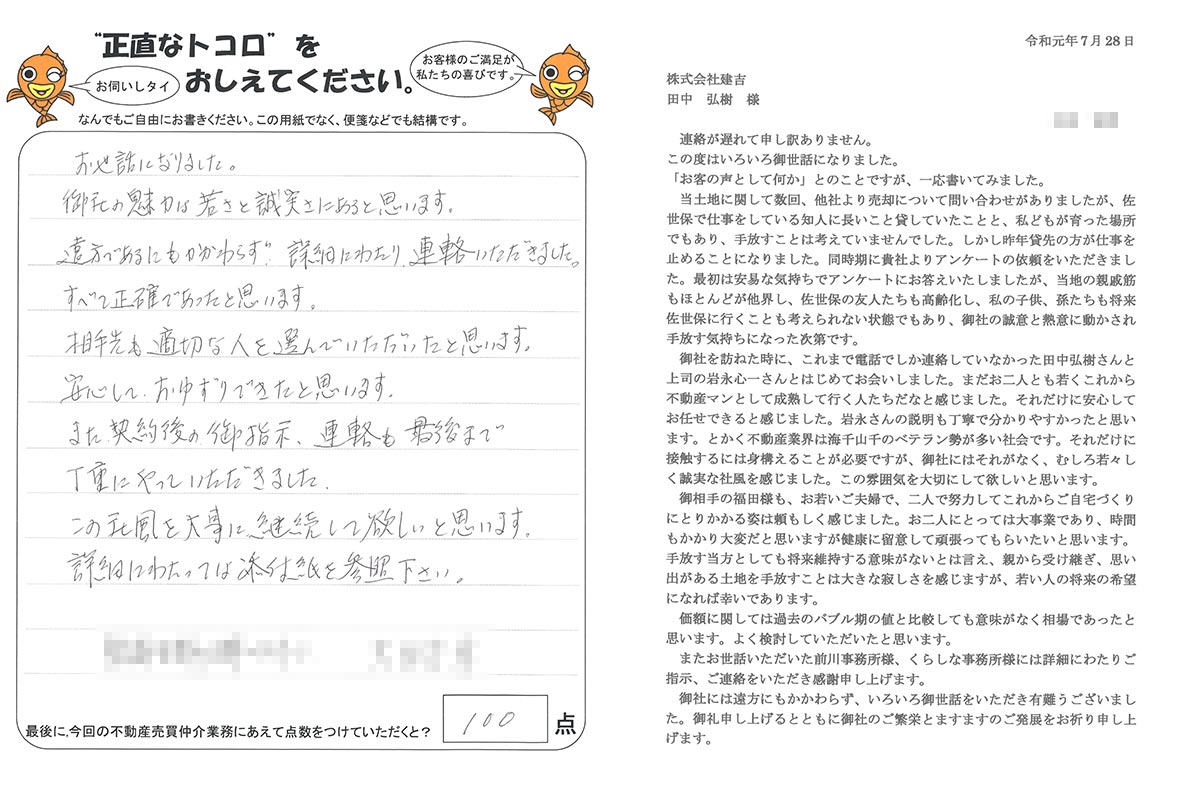 “正直なトコロ”を
おしえてください。
お伺いしタイ
お客様のご満足が
私たちの喜びです。
なんでもご自由にお書きください。この用紙でなく、便箋などでも結構です。
お世話になりました。
御社の魅力は若さと誠実さにあると思います。
遠方であるにもかかわらず、詳細にわたり、連絡いただきました。
すべて正確であったと思います。
相手先も適切な人を選んでいただいたと思います。
安心して、おゆずりできたと思います。
また、契約後の御指示、連絡も最後まで
丁重にやっていただきました。
この社風を大事に継続して欲しいと思います。
詳細にわたっては添付紙を参照下さい。
最後に、今回の不動産売買仲介業務にあえて点数をつけていただくと?
100
点
令和元年7月28日
株式会社建吉
田中 弘樹 様
連絡が遅れて申し訳ありません。
この度はいろいろ御世話になりました。
「お客の声として何か」とのことですが、一応書いてみました。
当土地に関して数回、他社より売却について問い合わせがありましたが、佐
世保で仕事をしている知人に長いこと貸していたことと、私どもが育った場所
でもあり、手放すことは考えていませんでした。しかし昨年貸先の方が仕事を
止めることになりました。同時期に貴社よりアンケートの依頼をいただきまし
た。最初は安易な気持ちでアンケートにお答えいたしましたが、当地の親戚筋
もほとんどが他界し、佐世保の友人たちも高齢化し、私の子供、孫たちも将来
佐世保に行くことも考えられない状態でもあり、御社の誠意と熱意に動かされ
手放す気持ちになった次第です。
御社を訪ねた時に、これまで電話でしか連絡していなかった田中弘樹さんと
上司の岩永心一さんとはじめてお会いしました。まだお二人とも若くこれから
不動産マンとして成熟して行く人たちだなと感じました。それだけに安心して
お任せできると感じました。岩永さんの説明も丁寧で分かりやすかったと思い
ます。とかく不動産業界は海千山千のベテラン勢が多い社会です。それだけに
接触するには身構えることが必要ですが、御社にはそれがなく、むしろ若々し
く誠実な社風を感じました。この雰囲気を大切にして欲しいと思います。
御相手の福田様も、お若いご夫婦で、二人で努力してこれからご自宅づくり
にとりかかる姿は頼もしく感じました。お二人にとっては大事業であり、時間
もかかり大変だと思いますが健康に留意して頑張ってもらいたいと思います。
手放す当方としても将来維持する意味がないとは言え、親から受け継ぎ、思い
出がある土地を手放すことは大きな寂しさを感じますが、若い人の将来の希望
になれば幸いであります。
価額に関しては過去のバブル期の値と比較しても意味がなく相場であったと
思います。よく検討していただいたと思います。
またお世話いただいた前川事務所様、くらしな事務所様には詳細にわたりご
指示、ご連絡をいただき感謝申し上げます。
御社には遠方にもかかわらず、いろいろ御世話をいただき有難うございまし
た。御礼申し上げるとともに御社のご繁栄とますますのご発展をお祈り申し上
げます。